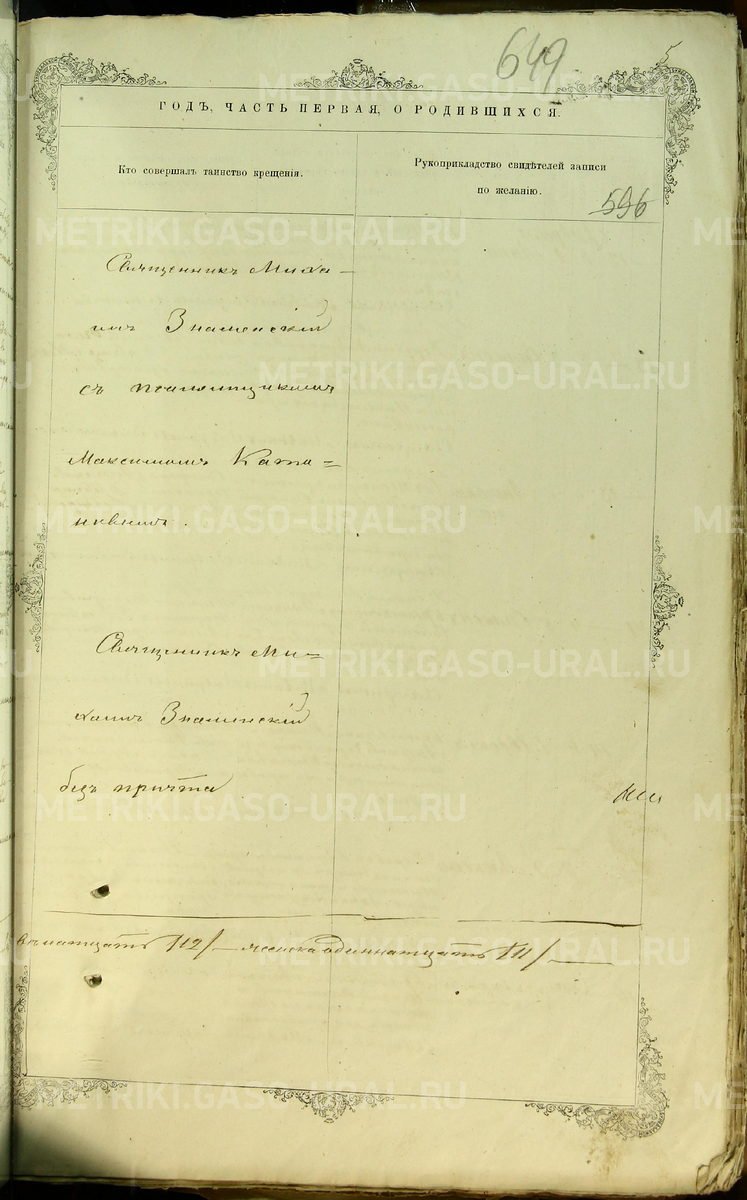 649
5
ГОДЪ, ЧАСТЬ ПЕРВАЯ, О РОДИВШИХСЯ.
Кто совершалъ таинство крещенія.
Рукоприкладство свидѣтелей записи
по желанію.
596
Священникъ Миха-
илъ Знаменскій
съ псаломщикомъ
Максимомъ Ката-
Священникъ Ми-
хаилъ Знаменскій
безъ причта
12/ — женска одиннатцать 11/ —
METRIKI.GASO-URAL.RU